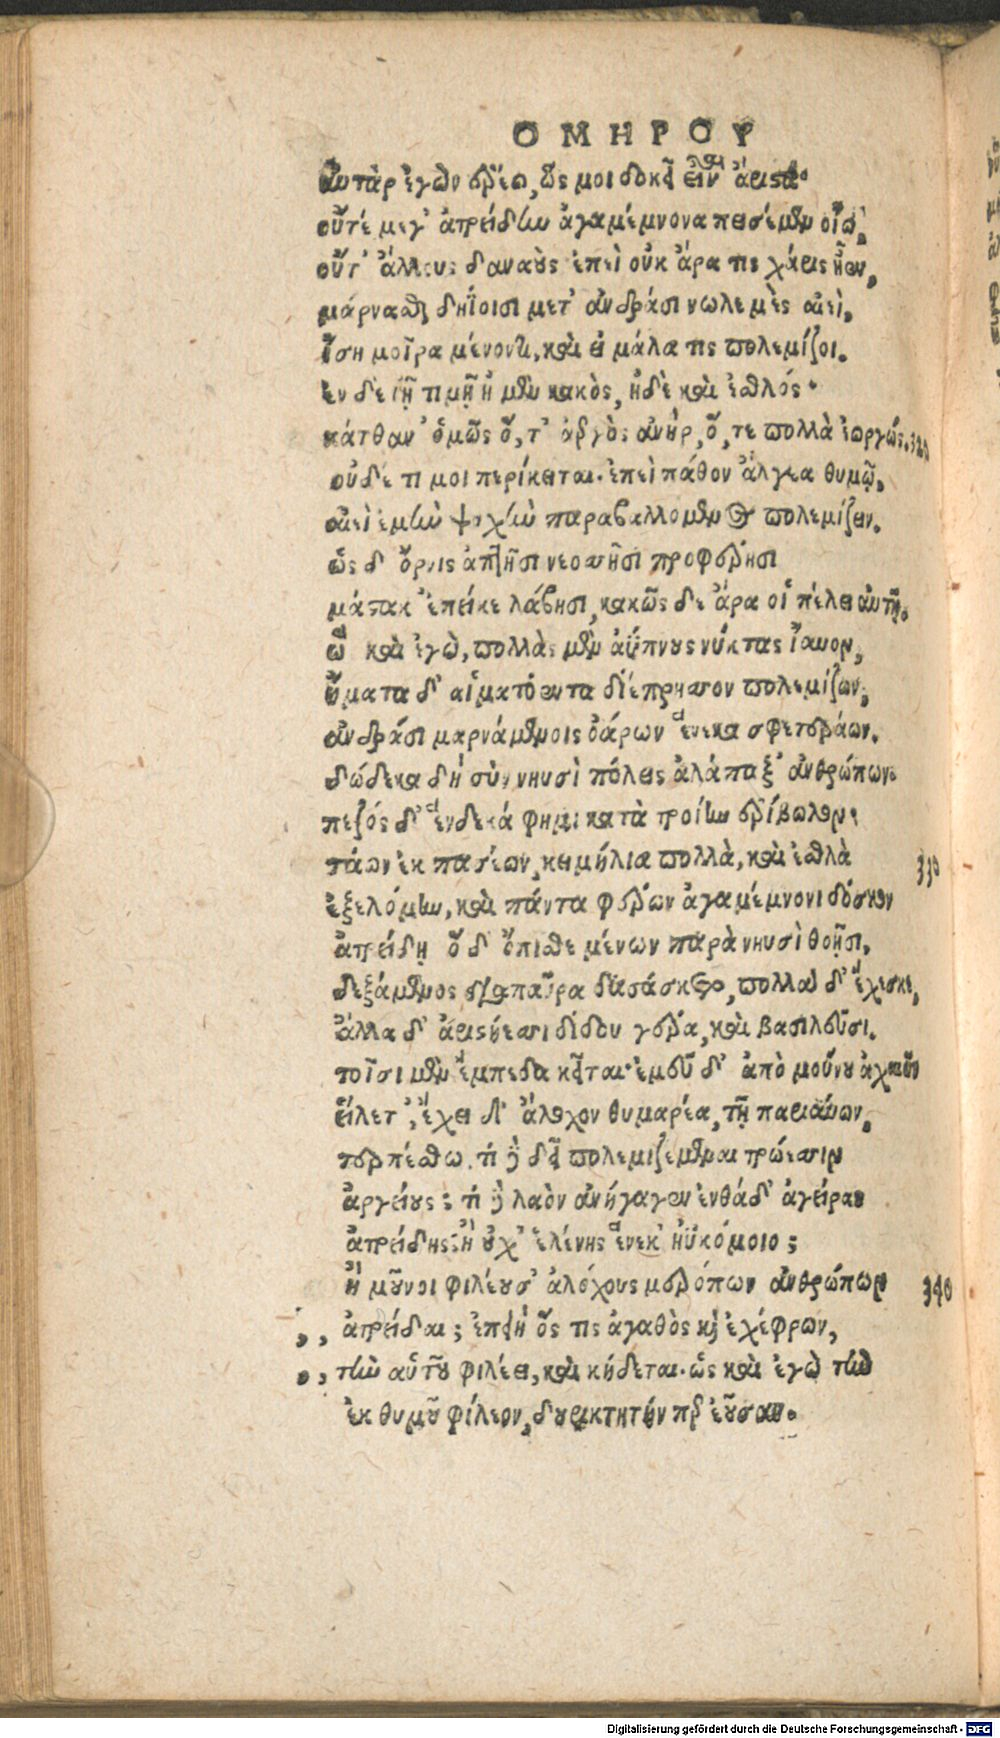 ΟΜΗΡΟΥ
αὐτὰρ ἐγὼν ἐρέω, ὥς μοι δοκεῖ εἶναι ἄριστα·
οὔτέ μεγ' ἀτρείδην ἀγαμέμνονα πεισέμεν οἴω,
οὔτ' ἄλλους δαναοὺς ἐπεὶ οὐκ ἄρα τις χάρις ἦεν,
μάρνασθαι δηΐοισι μετ' ἀνδράσι νωλεμὲς αἰεὶ.
ἴση μοῖρα μένοντι, καὶ εἰ μάλα τις πολεμίζοι.
ἐν δὲ ἰῇ τιμῇ ἠ μὲν κακὸς, ἠδὲ καὶ ἐσθλός·
κάτθαν' ὁμῶς ὅ, τ' ἀεργὸς ἀνὴρ, ὅ, τε πολλὰ ἐοργώς. 320
οὐδέ τι μοι περίκειται. ἐπεὶ πάθον ἄλγεα θυμῷ,
αἰεὶ ἐμὴν ψυχὴν παραβαλλόμενος πολεμίζειν.
ὡς δ' ὄρνις ἀπτῆσι νεοσσῆσι προφέρησι
μάστακ' ἐπείκε λάβησι, κακῶς δε ἄρα οἷ πέλει αὐτῇ.
ὣς καὶ ἐγὼ, πολλὰς μὲν ἀΰπνους νύκτας ἴαυον,
ἤματα δ' αἱματόεντα διέπρησσον πολεμίζων,
ἀνδράσι μαρνάμενοις ὀάρων ἕνεκα σφετεράων.
δώδεκα δὴ σὺν νηυσὶ πόλεις ἀλάπαξ' ἀνθρώπων.
πεζός δ' ἕνδεκά φημι κατὰ τροίην ἐρίβωλον·
τάων ἐκ πασέων, κειμήλια πολλὰ, καὶ ἐσθλὰ 330
ἐξελόμην, καὶ πάντα φέρων ἀγαμέμνονι δόσκον
ἀτρείδῃ ὅ δ' ὄπισθε μένων παρὰ νηυσὶ θοῇσι,
δεξάμενος διαπαῦρα δασάσκετο, πολλὰ δ' ἔχεσκε,
ἄλλα δ' ἀριστήεσσι δίδου γέρα, καὶ βασιλεῦσι.
τοῖσι μὲν ἔμπεδα κεῖται· ἐμεῦ δ' ἀπὸ μούνου ἀχαιῶν
εἵλετ', ἔχει δ' ἄλοχον θυμαρέα, τῇ παριαύων,
τερπέσθω. τί δὲ δεῖ πολεμιζέμεναι τρώεσσιν
ἀργείους; τί δὲ λαὸν ἀνήγαγεν ἐνθάδ' ἀγείρας
ἀτρείδης; ἢ οὐχ' ἑλένης ἕνεκ' ἠϋκόμοιο;
ἢ μοῦνοι φιλέουσ' ἀλόχους μερόπων ἀνθρώπων 340
,, ἀτρείδαι; ἐπεὶ ὅς τις ἀγαθὸς καὶ ἐχέφρων,
,, τὴν αὑτοῦ φιλέει, καὶ κήδεται. ὡς καὶ ἐγὼ τὴν
ἐκ θυμοῦ φίλεον, δουρικτητήν περ ἐοῦσαν.
Digitalisierung gefördert durch die Deutsche Forschungsgemeinschaft - DFG